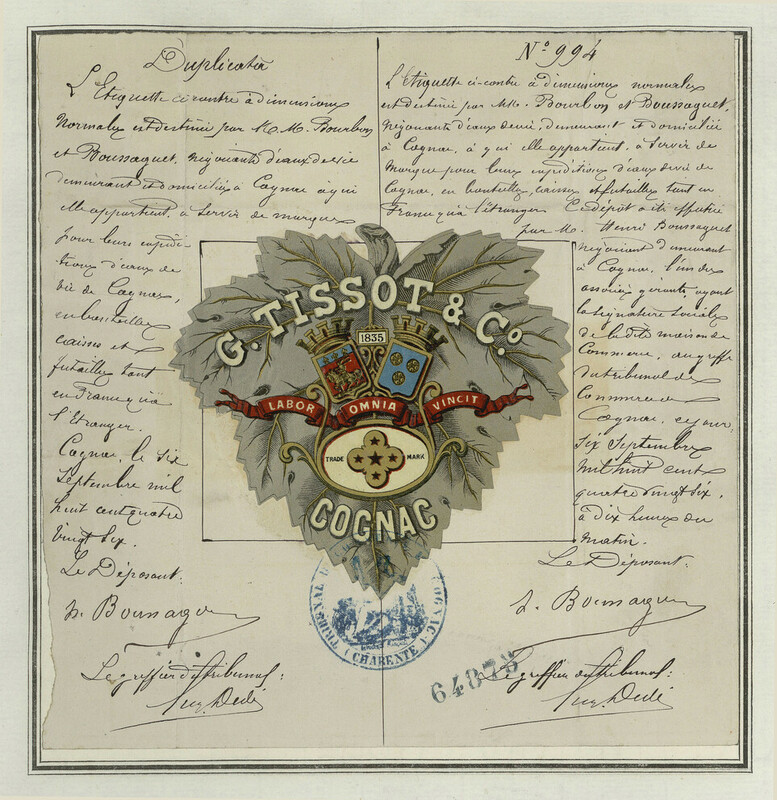 Duplicata
L'Etiquette ci contre à dimensions
normales est destinée par M.M. Bourbon
et Boussaguet, négociants d'eaux de vie
demeurant et domiciliés à Cognac à qui
elle appartient, à servir de marque
pour leurs expédi-
tions d'eaux de
vie de Cognac,
en bouteilles
caisses et
futailles tant
en France qu'à
l'Etranger.
Cognac, le six
Septembre mil
huit cent quatre
vingt six.
Le Déposant:
Le greffier du tribunal:
No 994
L'Etiquette ci-contre à dimensions normales
est destinée par MM. Bourbon et Boussaguet,
négociants d'eaux de vie, demeurant et domiciliés
à Cognac, à qui elle appartient, à servir de
marque pour leurs expéditions d'eaux de vie de
Cognac, en bouteilles, caisses et futailles tant en
France qu'à l'étranger. Ce dépôt a été effectué
par M. Henri Boussaguet
négociant demeurant
à Cognac, l'un des
associés gérants ayant
la signature sociale
de la dite maison de
Commerce, au greffe
du tribunal de
Commerce de
Cognac, ce jour,
six Septembre
mil huit cent
quatre vingt six,
à dix heures du
matin.
Le Déposant:
Le greffier du tribunal:
G. TISSOT & Co
1835
LABOR OMNIA VINCIT
TRADE MARK
COGNAC
(CHARENTE)
64873